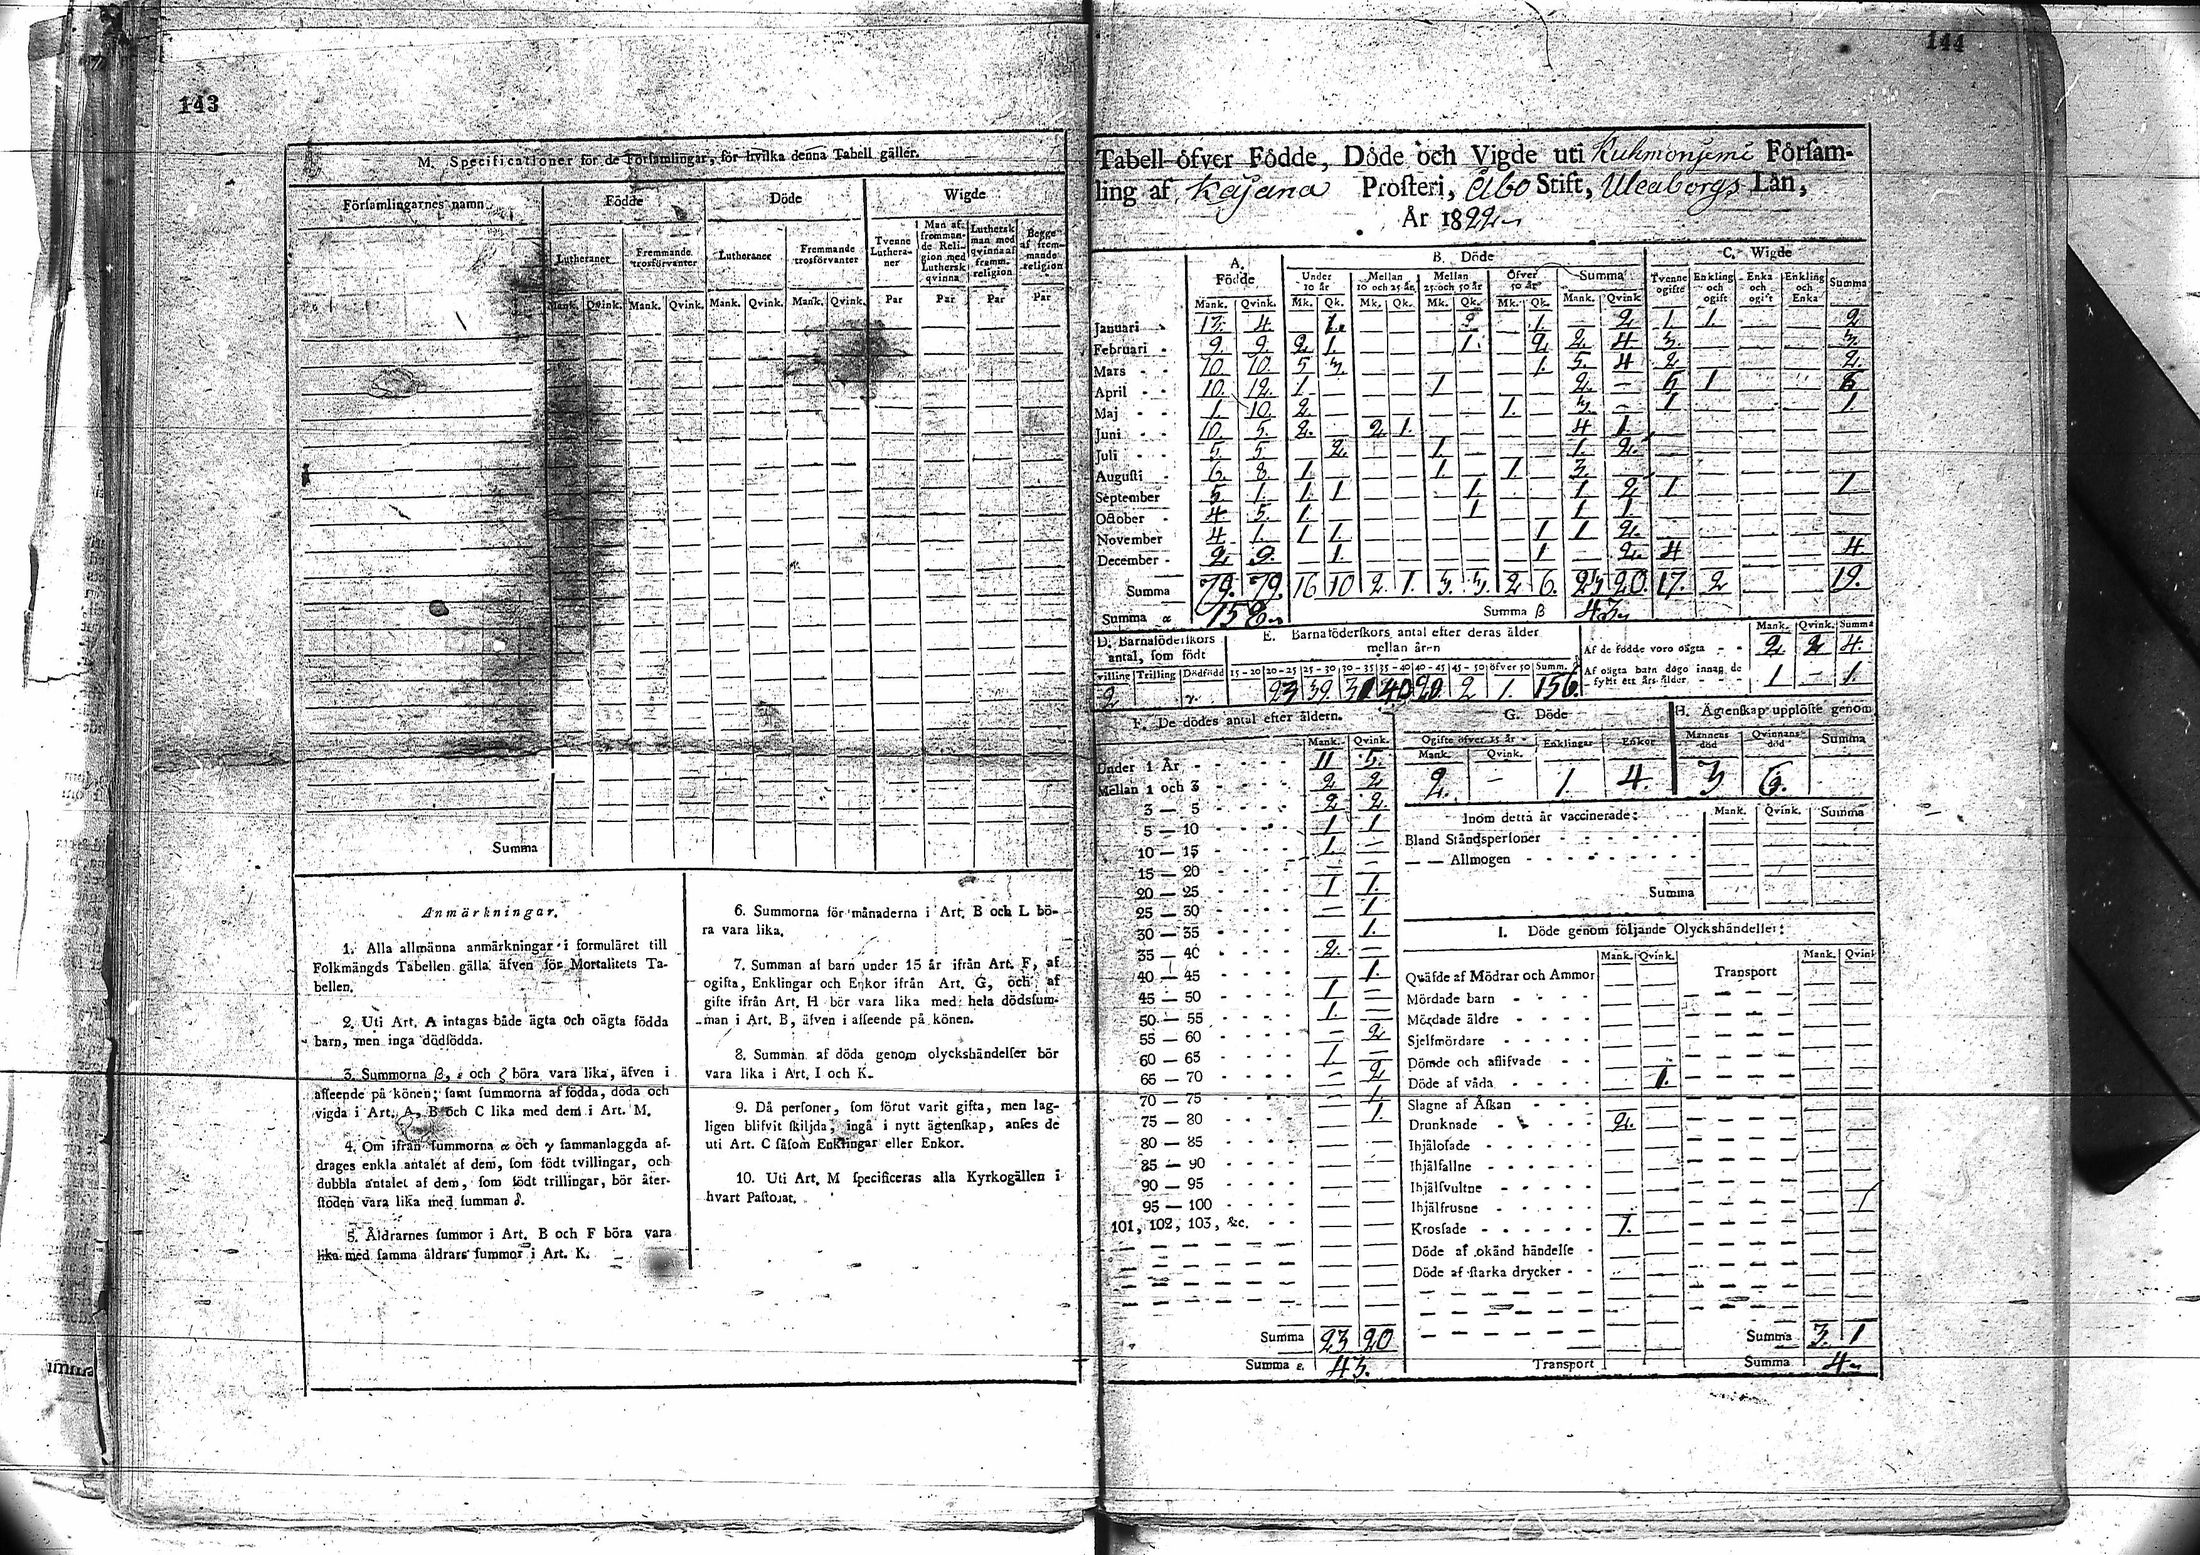 143
M. Specificationer för de Församlingar, för hvilka denna Tabell gäller.
Församlingarnes namn.
Födde
Döde
Wigde
Lutheraner
Fremmande trosförvanter
Lutheraner
Fremmande trosförvanter
Tvenne Lutheraner
Man af fremmande Religion med Luthersk qvinna
Luthersk man med qvinna af fremm. religion
Begge af fremmande religion
Mank. Qvink. Mank. Qvink. Mank. Qvink. Mank. Qvink. Par Par Par Par
Summa
Anmärkningar.
1. Alla allmänna anmärkningar i formuläret till
Folkmängds Tabellen gälla äfven för Mortalitets Ta-
bellen.
2. Uti Art. A intagas både ägta och oägta födda
barn, men inga dödfödda.
3. Summorna β, ε och ζ böra vara lika, äfven i
afseende på könen; samt summorna af födda, döda och
vigda i Art. A, B och C lika med dem i Art. M.
4. Om ifrån summorna α och γ sammanlaggda af-
drages enkla antalet af dem, som födt tvillingar, och
dubbla antalet af dem, som födt trillingar, bör åter-
stoden vara lika med summan δ.
5. Åldrarnes summor i Art. B och F böra vara
lika med samma åldrars summor i Art. K.
6. Summorna för månaderna i Art. B och L bö-
ra vara lika.
7. Summan af barn under 15 år ifrån Art. F, af
ogifta, Enklingar och Enkor ifrån Art. G, och af
gifte ifrån Art. H bör vara lika med hela dödssum-
man i Art. B, äfven i afseende på könen.
8. Summan af döda genom olyckshändelser bör
vara lika i Art. I och K.
9. Då personer, som förut varit gifta, men lag-
ligen blifvit skiljda, ingå i nytt ägtenskap, anses de
uti Art. C såsom Enklingar eller Enkor.
10. Uti Art. M specificeras alla Kyrkogällen i
hvart Pastorat.
144
Tabell öfver Födde, Döde och Vigde uti Kuhmonjemi Försam-
ling af Kajana Prosteri, Åbo Stift, Uleaborgs Län,
År 1822
A. Födde
B. Döde
C. Wigde
Under 10 år
Mellan 10 och 25 år
Mellan 25 och 50 år
Öfver 50 år
Summa
Tvenne ogifte
Enkling och ogift
Enka och ogift
Enkling och Enka
Summa
Mank. Qvink. Mk. Qk. Mk. Qk. Mk. Qk. Mk. Qk. Mank. Qvink
Januari 13. 4. — 1. — — — — 1. — 2. 1. 1. — — 2
Februari 9. 9. 2 1. — — — 1. — 2 2. 4 3. — — — 3.
Mars 10. 10. 5 3. — — — — — 1. 5. 4 2 — — — 2.
April 10. 12. 1. — — — 1 — — — 2. — 5 1 — —
Maj 1. 10. 2. — — — — — 1. — 3. — 1 — — — 1.
Juni 10. 5. 2. — 2 1. — — — — 4 1. — — — —
Juli 5. 5. — 2. — — 1. — — — 1. 2. — — — —
Augusti 6. 8. 1. — — — 1. — 1. — 3. — — — — —
September 5. 1. 1. 1 — — — 1. — — 1 2 1 — — — 1
October 4. 5. 1. — — — — 1 — — 1 1. — — — —
November 4 1. 1 1. — — — — — 1 1 2. — — — —
December 2. 9. — 1. — — — — — 1. — 2. 4 — — — 4.
Summa 79. 79. 16 10 2. 1. 3. 3. 2 6. 23 20. 17. 2 — — 19.
Summa α 158
Summa β 43
D. Barnaföderskors antal, som födt
E. Barnaföderskors antal efter deras ålder mellan åren
tvilling Trilling Dödfödd 15-20 20-25 25-30 30-35 35-40 40-45 45-50 öfver 50 Summ.
2 23 39. 31 40 20 2 1. 156.
Mank. Qvink. Summa
Af de födde voro oägta 2 2 4.
Af oägta barn dogo innan de fyllt ett års ålder 1 — 1.
F. De dödes antal efter åldern.
Mank. Qvink.
Under 1 År 11 5.
Mellan 1 och 3 2 2
3 — 5 2 2.
5 — 10 1 1
10 — 15 1. —
15 — 20 — —
20 — 25 1 1.
25 — 30 — 1.
30 — 35 — 1.
35 — 40 2. —
40 — 45 — 1.
45 — 50 1 —
50 — 55 1. —
55 — 60 — 2
60 — 65 1. —
65 — 70 — 2
70 — 75 — 1.
75 — 80 — 1.
80 — 85
85 — 90
90 — 95
95 — 100
101, 102, 103, &c.
Summa 23 20
Summa ε. 43.
G. Döde
Ogifte öfver 15 år
Enklingar
Enkor
Mank. Qvink.
2. — 1. 4.
H. Ägtenskap upplöste genom
Mannens död
Qvinnans död
Summa
3 6.
Inom detta år vaccinerade:
Mank. Qvink. Summa
Bland Ståndspersoner
— — Allmogen
Summa
I. Döde genom följande Olyckshändelser:
Mank. Qvink.
Transport
Mank. Qvink
Quäfde af Mödrar och Ammor
Mördade barn
Mördade äldre
Sjelfmördare
Dömde och aflifvade
Döde af våda — 1.
Slagne af Åskan
Drunknade 2. —
Ihjälofade
Ihjälfallne
Ihjälsvultne
Ihjälfrusne
Krossade 1. —
Döde af okänd händelse
Döde af starka drycker
Transport
Summa 3. 1
Summa 4